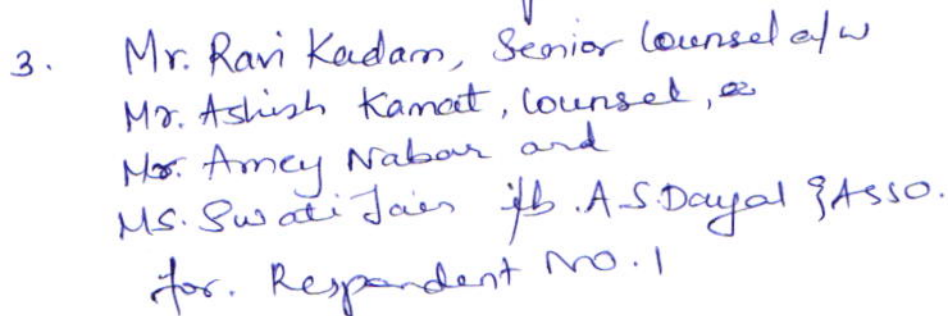 3. Mr. Ravi Kadam, Senior Counsel a/w
Mr. Ashish Kamat, Counsel,
Mr. Amey Nabar and
MS. Swati Jain i/b. A.S. Dayal & Asso.
for. Respondent No. 1